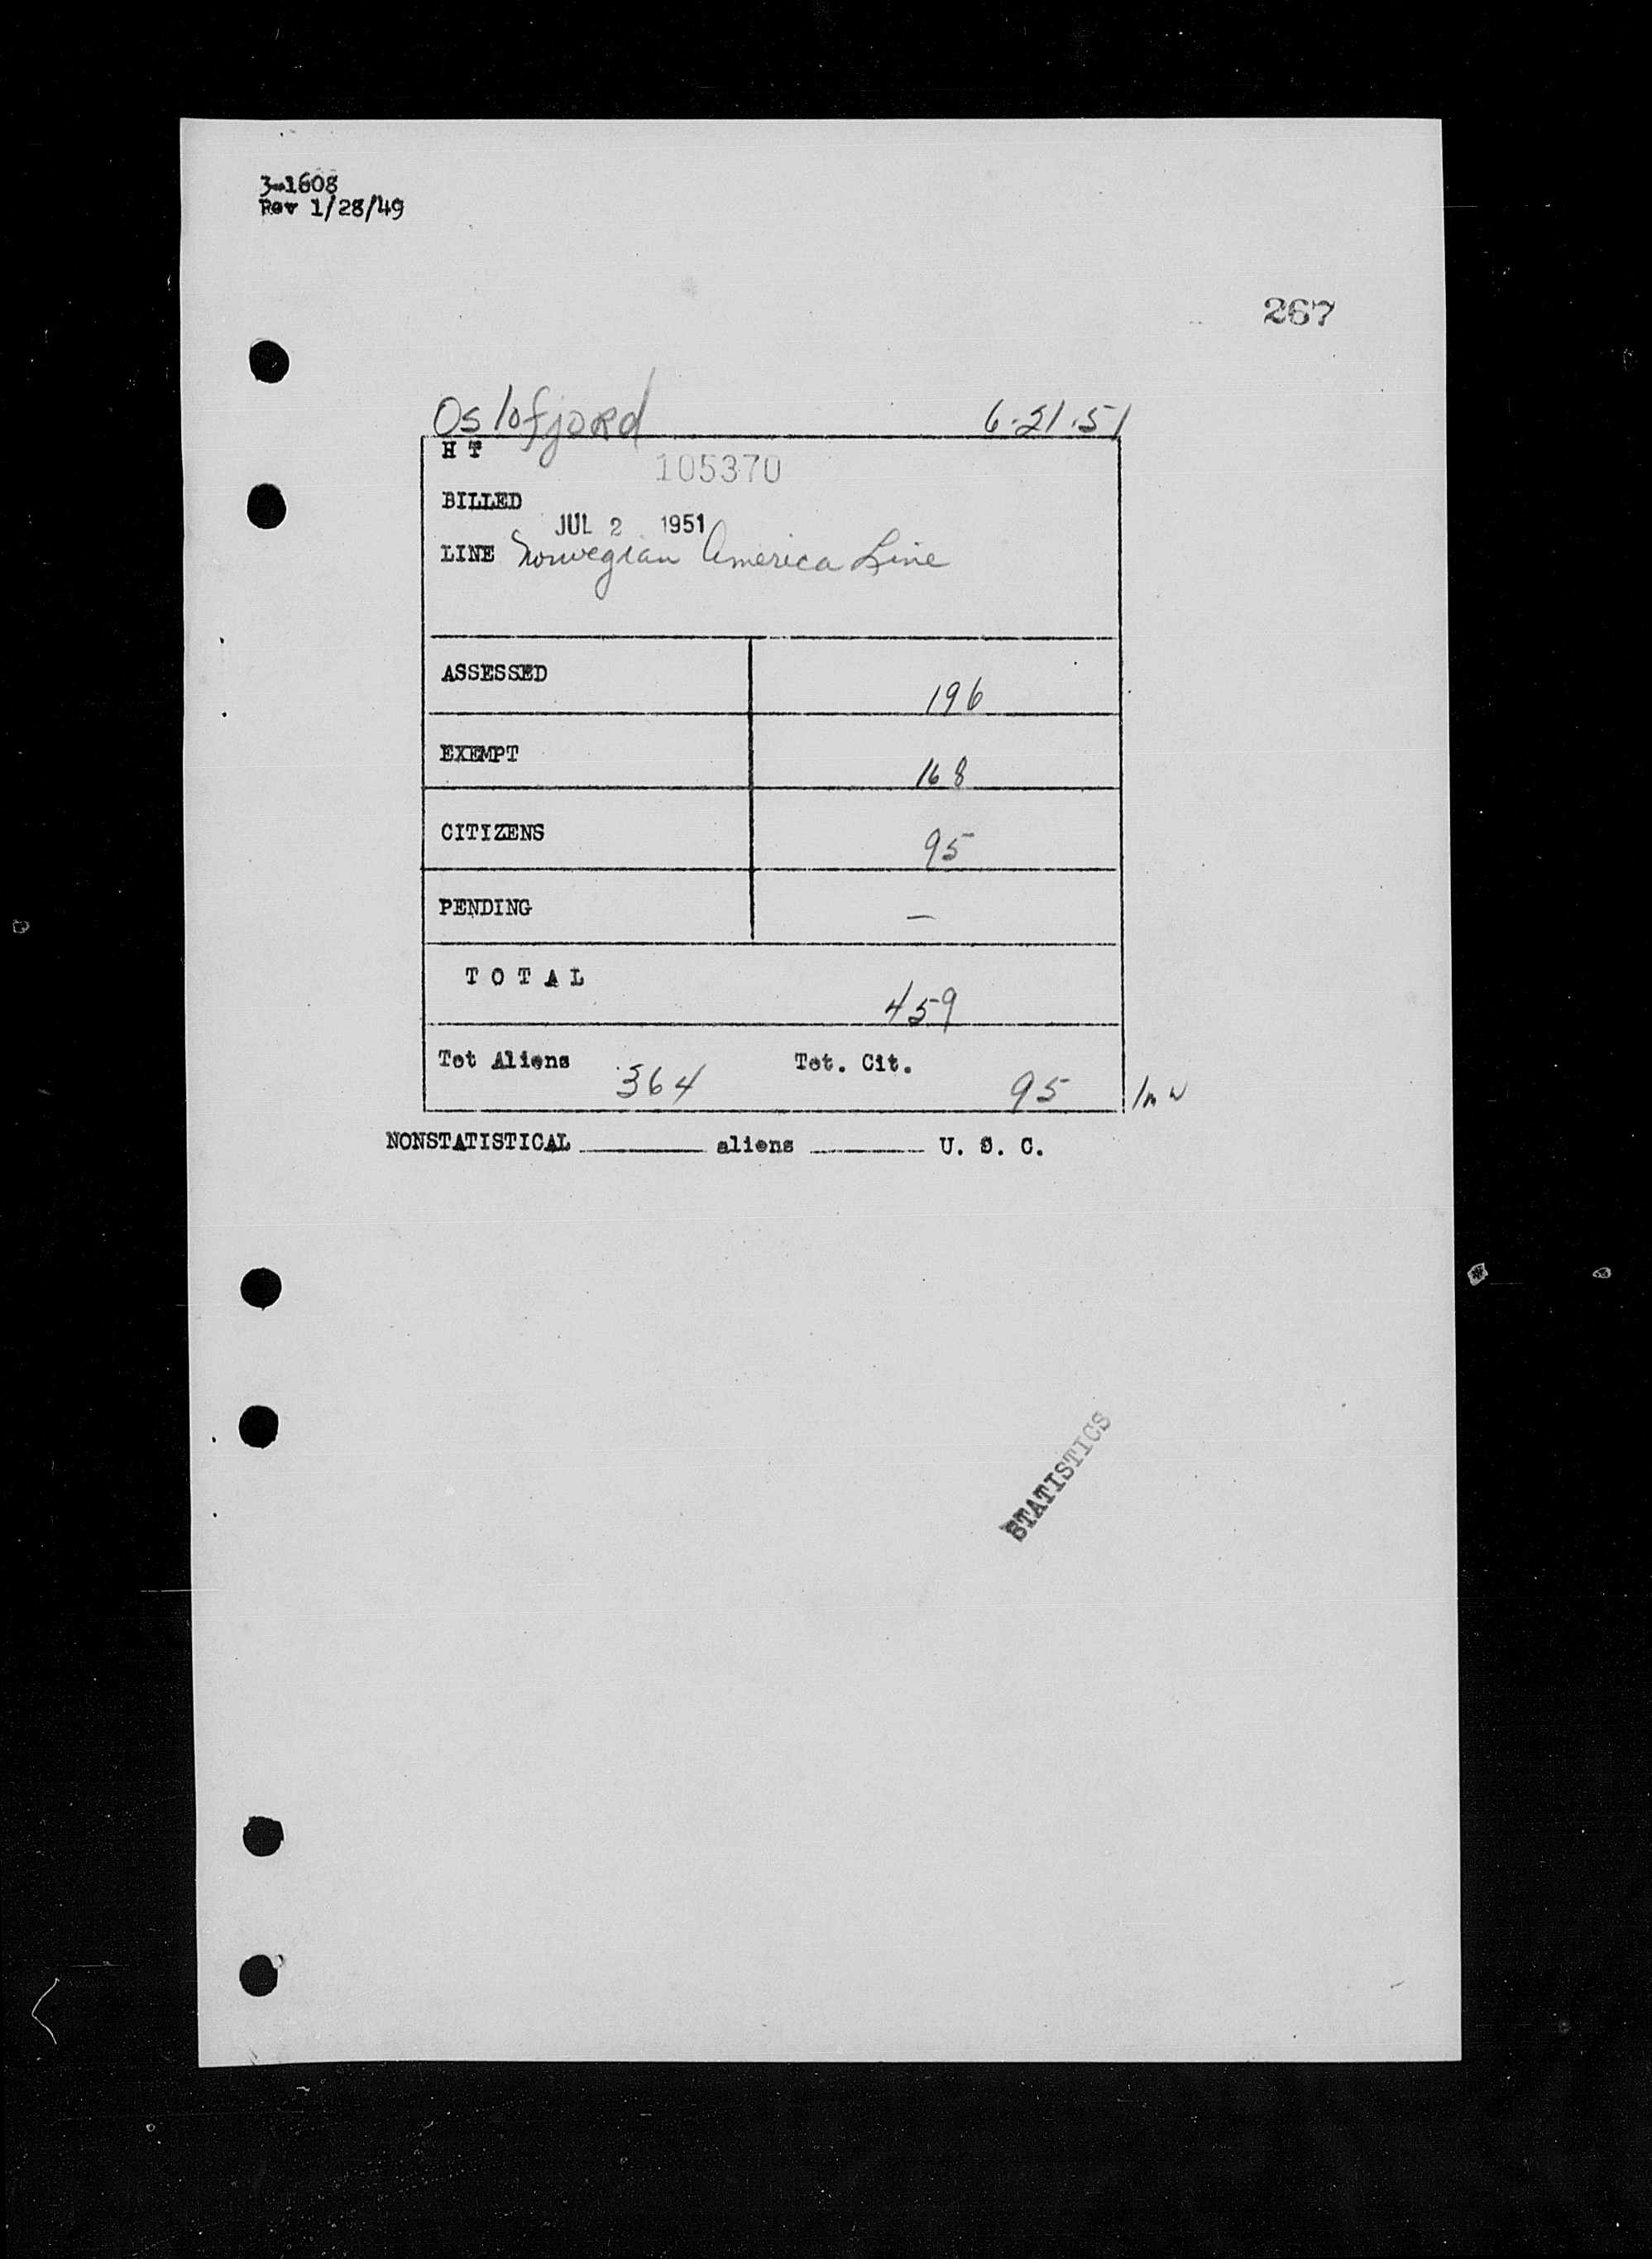 3-1608
Rev 1/28/49
267
Oslofjord 6-21-51
H T 105370
BILLED
JUL 2 1951
LINE Norwegian America Line
ASSESSED 196
EXEMPT 168
CITIZENS 95
PENDING —
T O T A L 459
Tot Aliens 364 Tot. Cit. 95
NONSTATISTICAL ________ aliens ________ U. S. C.
STATISTICS